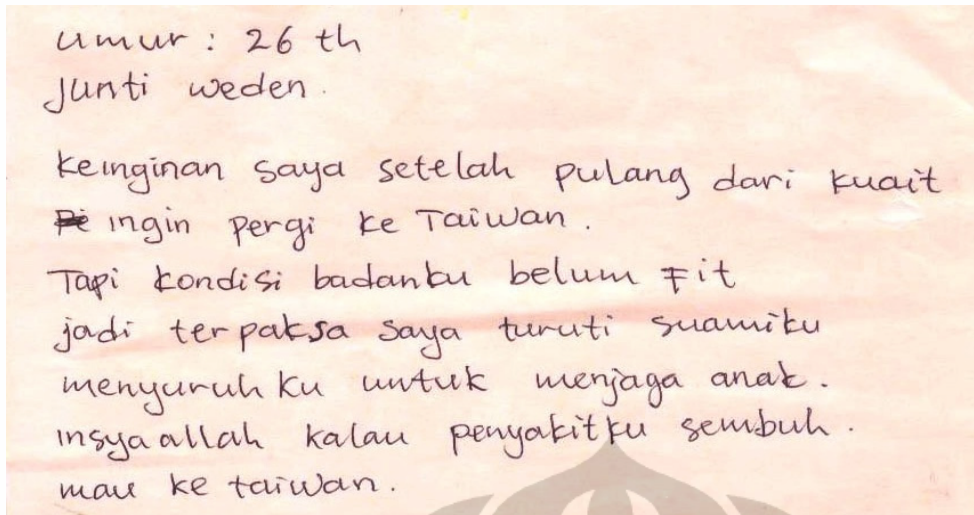 umur : 26 th
Junti weden.
keinginan saya setelah pulang dari kuait
ingin pergi ke Taiwan.
Tapi kondisi badanku belum Fit
jadi terpaksa saya turuti suamiku
menyuruhku untuk menjaga anak.
insyaallah kalau penyakitku sembuh.
mau ke taiwan.